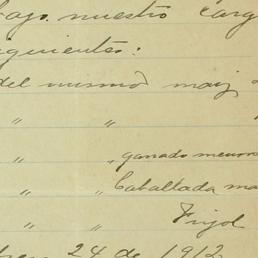 bajo nuestro carg
siguientes:
del mismo maiz
" "
" " ganado menor
" " Caballada ma
" " Frijol
24 de 1912